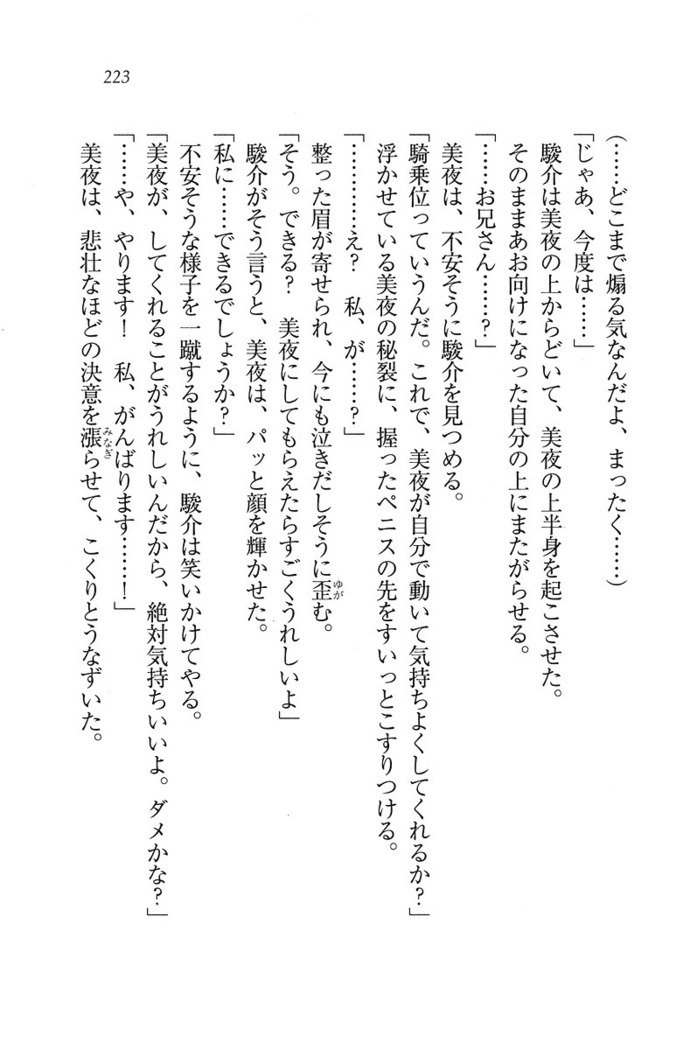 223
(……どこまで煽る気なんだよ、まったく……)
「じゃあ、今度は……」
駿介は美夜の上からどいて、美夜の上半身を起こさせた。
そのままあお向けになった自分の上にまたがらせる。
「……お兄さん……?」
美夜は、不安そうに駿介を見つめる。
「騎乗位っていうんだ。これで、美夜が自分で動いて気持ちよくしてくれるか?」
浮かせている美夜の秘裂に、握ったペニスの先をすいっとこすりつける。
「…………え? 私、が……?」
整った眉が寄せられ、今にも泣きだしそうに歪ゆがむ。
「そう。できる? 美夜にしてもらえたらすごくうれしいよ」
駿介がそう言うと、美夜は、パッと顔を輝かせた。
「私に……できるでしょうか?」
不安そうな様子を一蹴するように、駿介は笑いかけてやる。
「美夜が、してくれることがうれしいんだから、絶対気持ちいいよ。ダメかな?」
「……や、やります! 私、がんばります……!」
美夜は、悲壮なほどの決意を漲みなぎらせて、こくりとうなずいた。